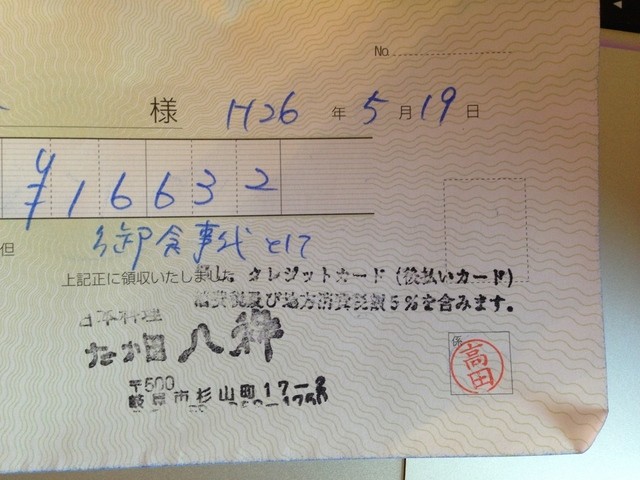 No
様 H26 年 5 月 19 日
¥16632
但 御食事代として
上記正に領収いたしました。クレジットカード(後払いカード)
消費税及び地方消費税額5%を含みます。
日本料理
たか田八祥
係
高田
〒500
岐阜市杉山町17-2